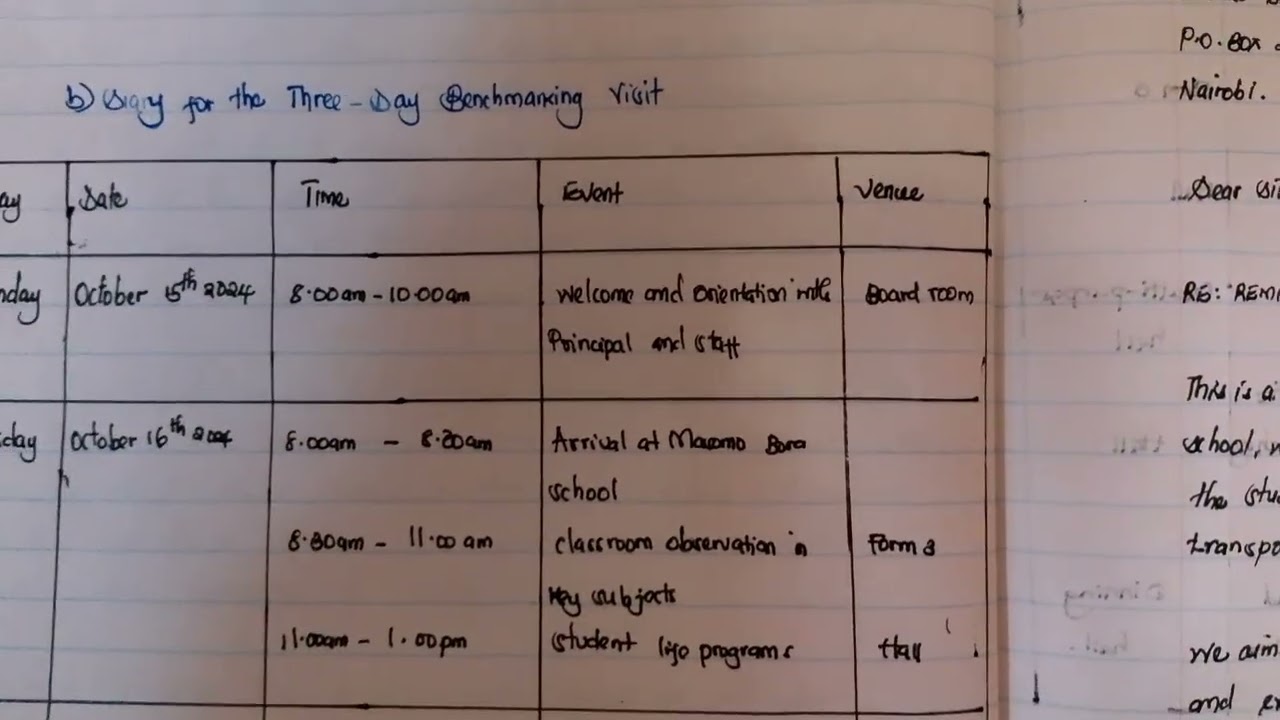 b) Diary for the Three-Day Benchmarking Visit
ay Date Time Event Venue
nday October 15th 2024 8.00am - 10.00am Welcome and Orientation with Board room
Principal and staff
day October 16th 2024 8.00am - 8.30am Arrival at Masomo Bora
school
8.30am - 11.00am classroom observation in Form 3
Key subjects
11.00am - 1.00pm student life programs Hall
P.O. BOX
Nairobi.
Dear Si
RE: REMI
This is a
school,
the stu
transpo
We aim
and